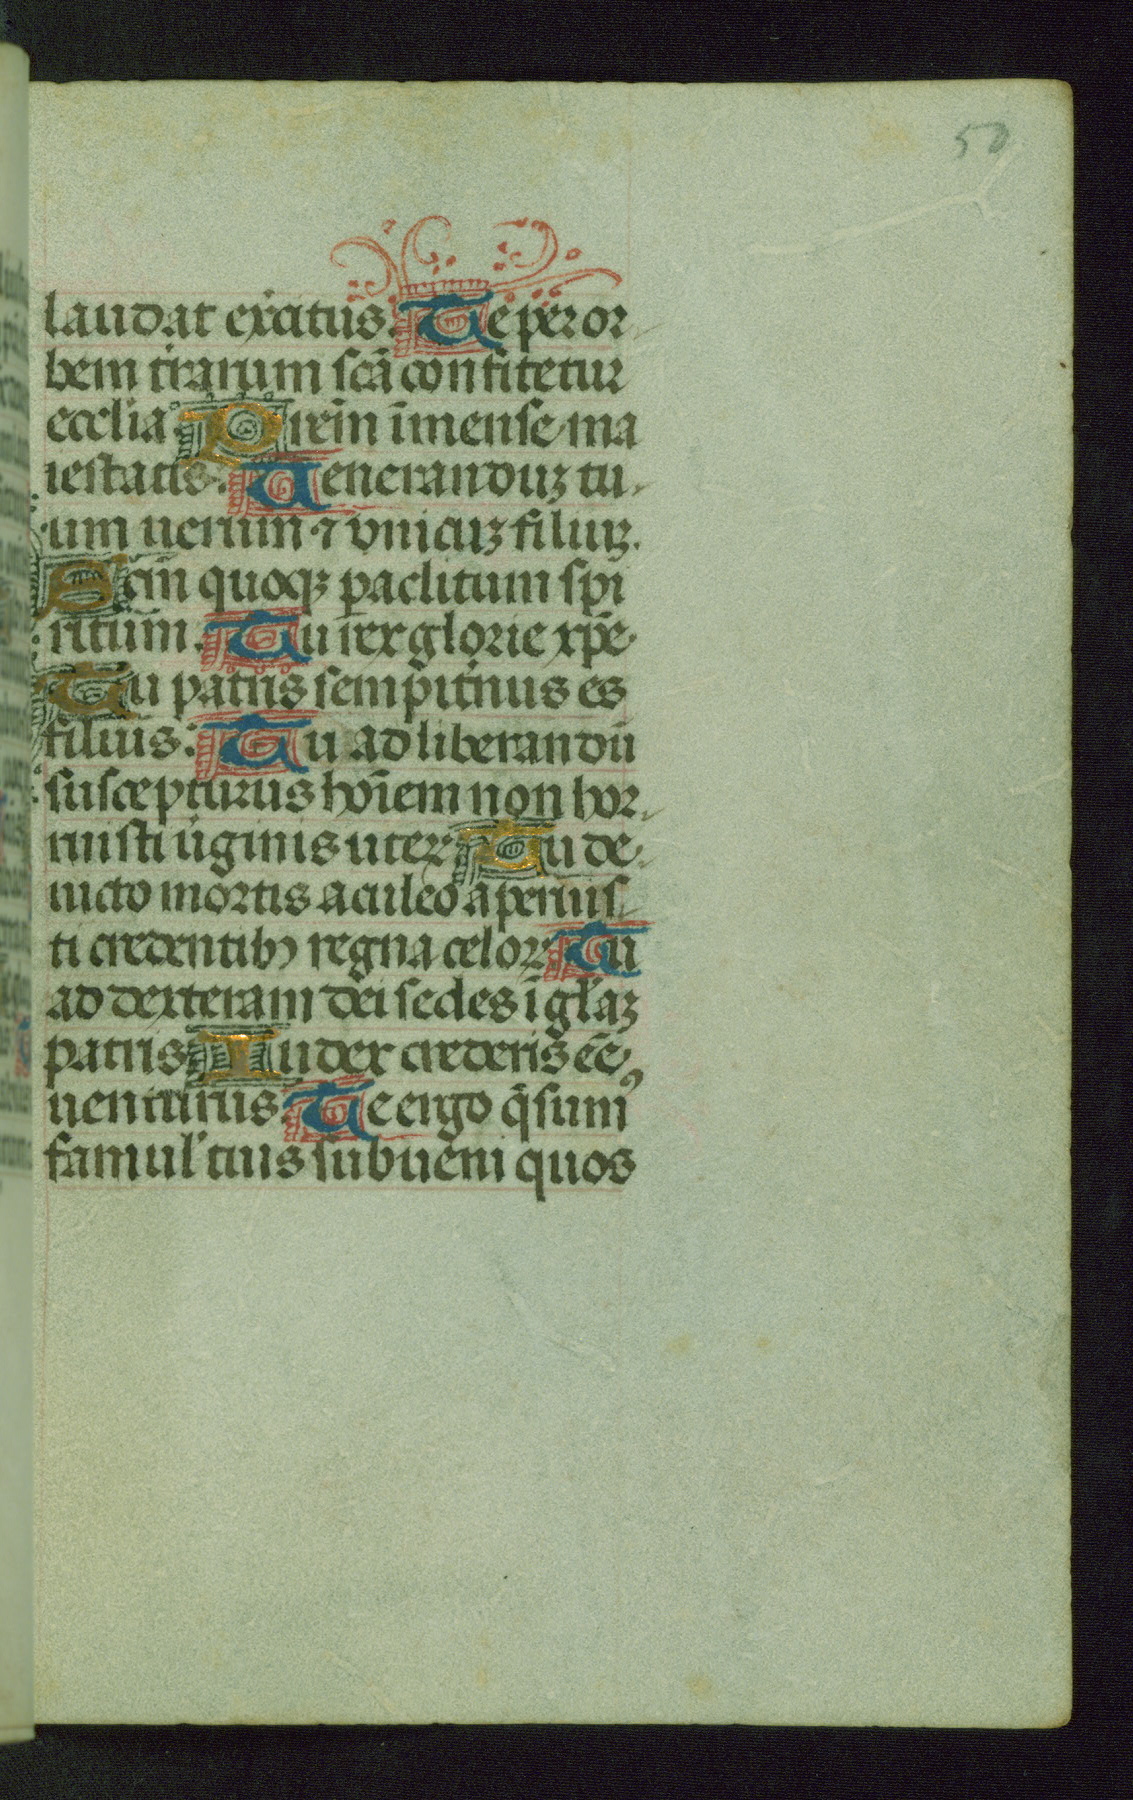 50
laudat exċitus. Te per or
bem tr̄arum scā confitetur
eccl̄ia. Pr̄em īmense ma
iestatis. Ueneranduꝫ tu
um uerum ⁊ vnicuꝫ filiuꝫ.
Scm̄ quoqꝫ paclitum spi
ritum. Tu rex glorie xp̄e.
Tu patris semꝑit̄nus es
filius. Tu ad liberandū
suscepturus hoīem non hor
ruisti ūginis uterꝫ Tu de
uicto mortis aculeo aperuis
ti credentibꝰ regna celoꝝ Tu
ad dexteram dei sedes ī gl̄aꝫ
patris Iudex crederis ēē
uenturus. Te ergo q̄sumꝰ
famul' tuis subueni quos